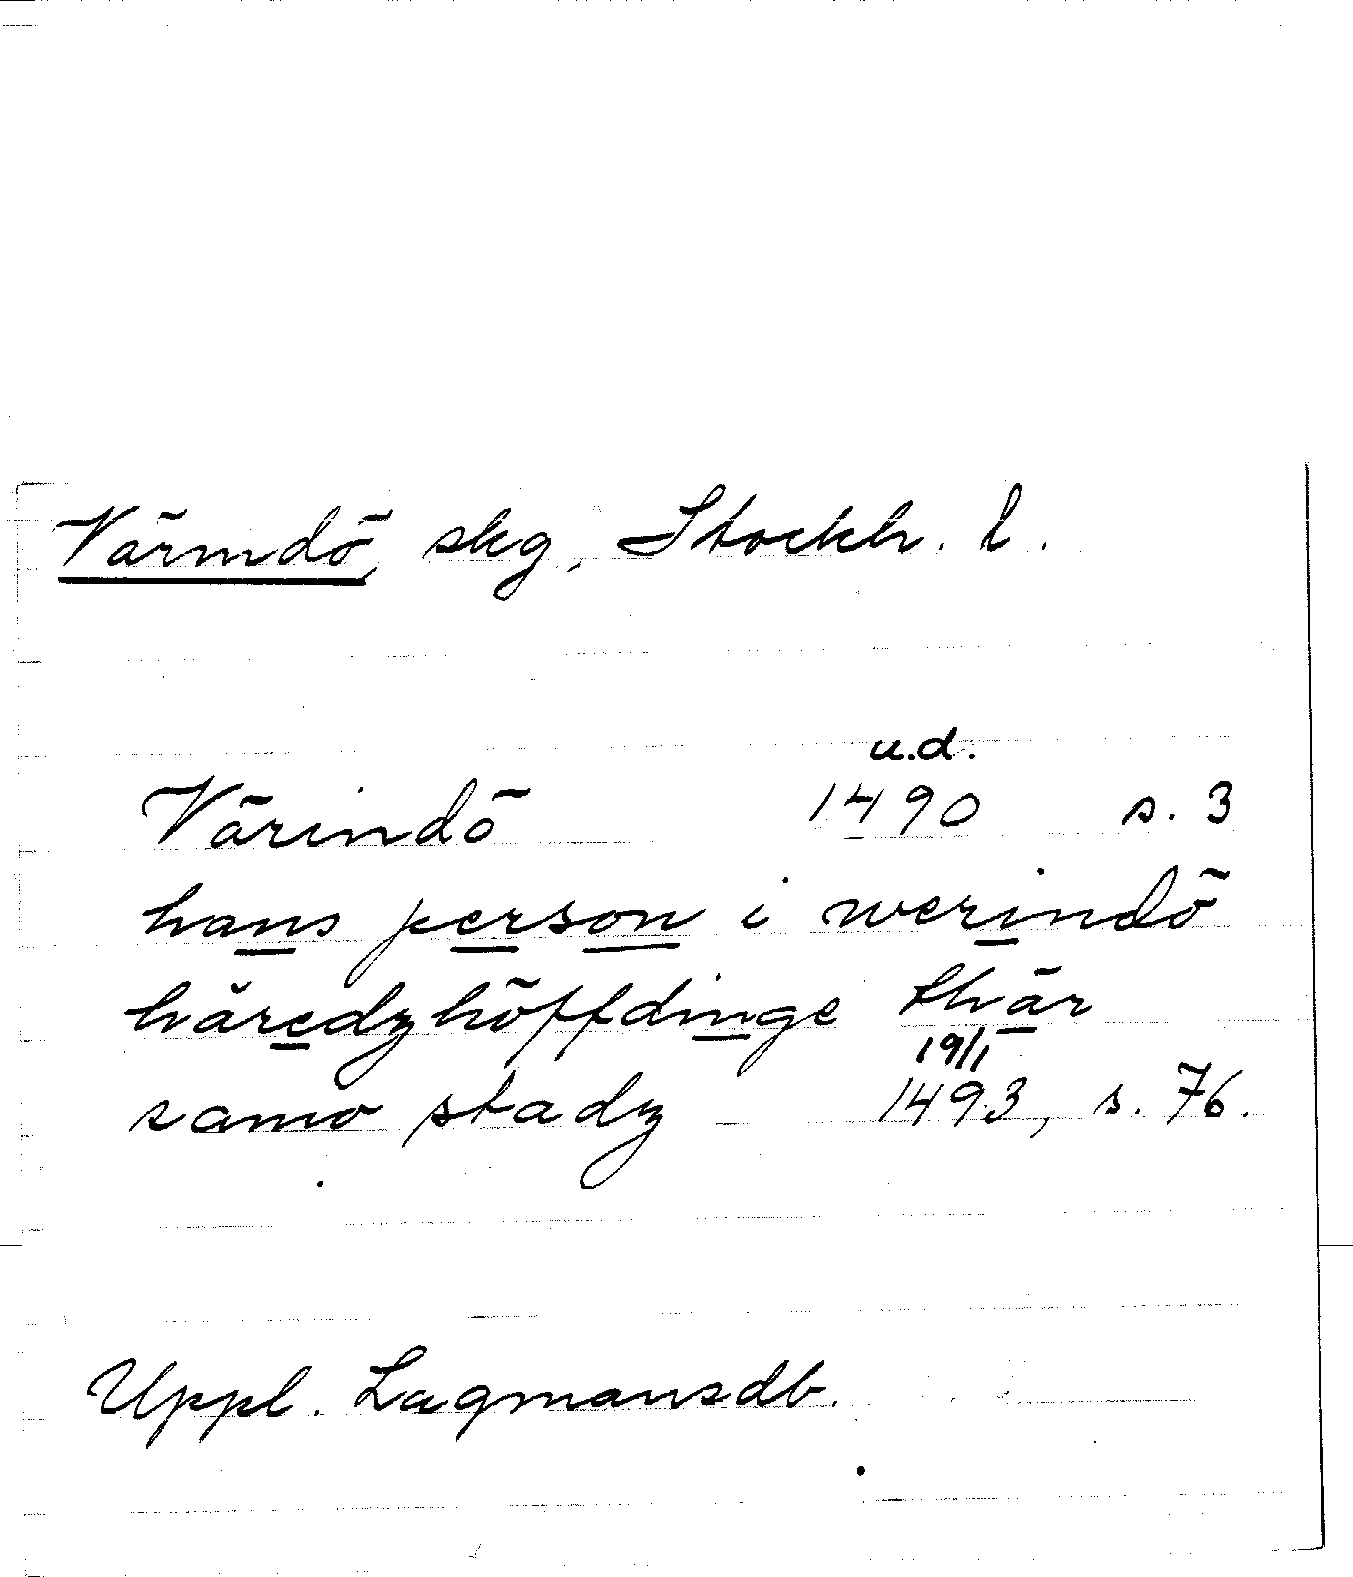 Värmdö, skg, Stockh. l.
u.d.
Värindö 1490 s. 3
hans person i werindö
häredzhöffdinge thär
19/1
samo stadz 1493, s. 76.
Uppl. Lagmansdb.